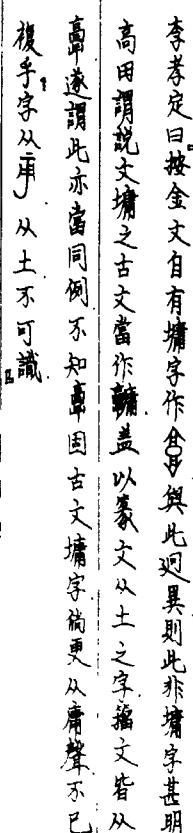 李孝定曰按金文自有墉字作𩫏與此迥異則此非墉字甚明
高田謂説文墉之古文當作𩫨盖以篆文从土之字籀文皆从
𩫏遂謂此亦當同例不知𩫏固古文墉字倘更从庸聲不已
複乎字从𤰈从土不可識